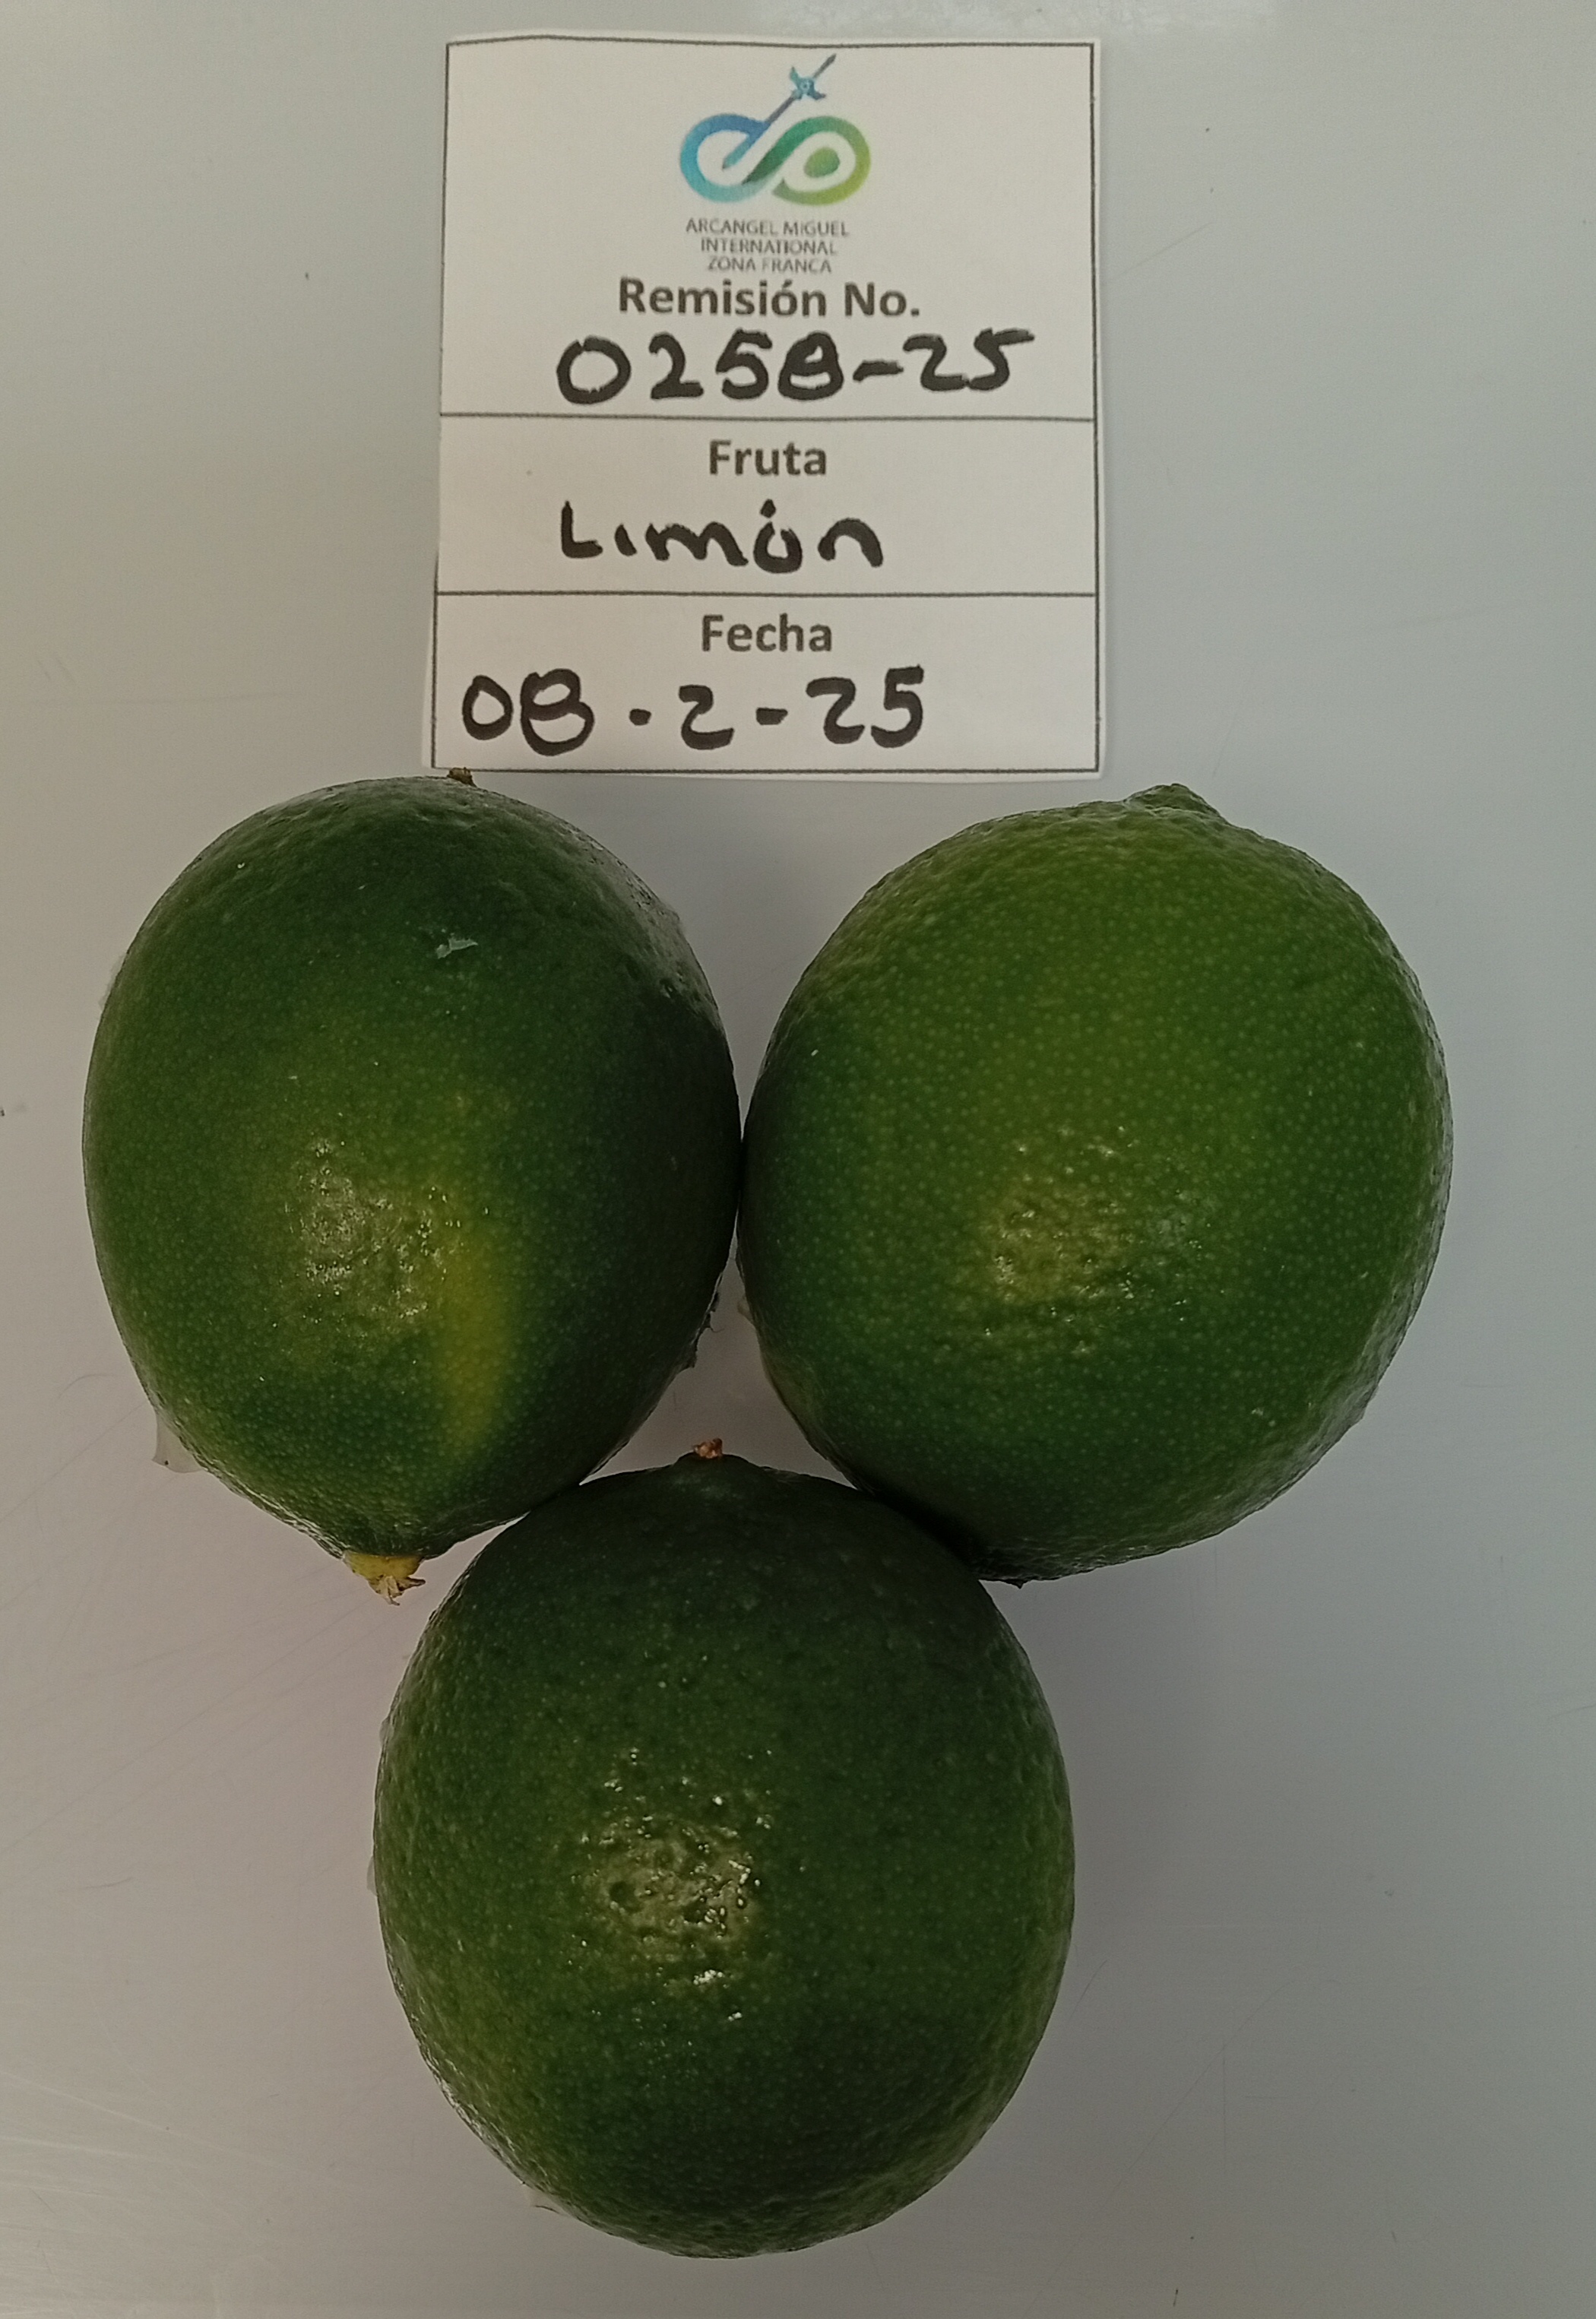 ARCANGEL MIGUEL
INTERNATIONAL
ZONA FRANCA
Remisión No.
0258-25
Fruta
Limón
Fecha
08-2-25